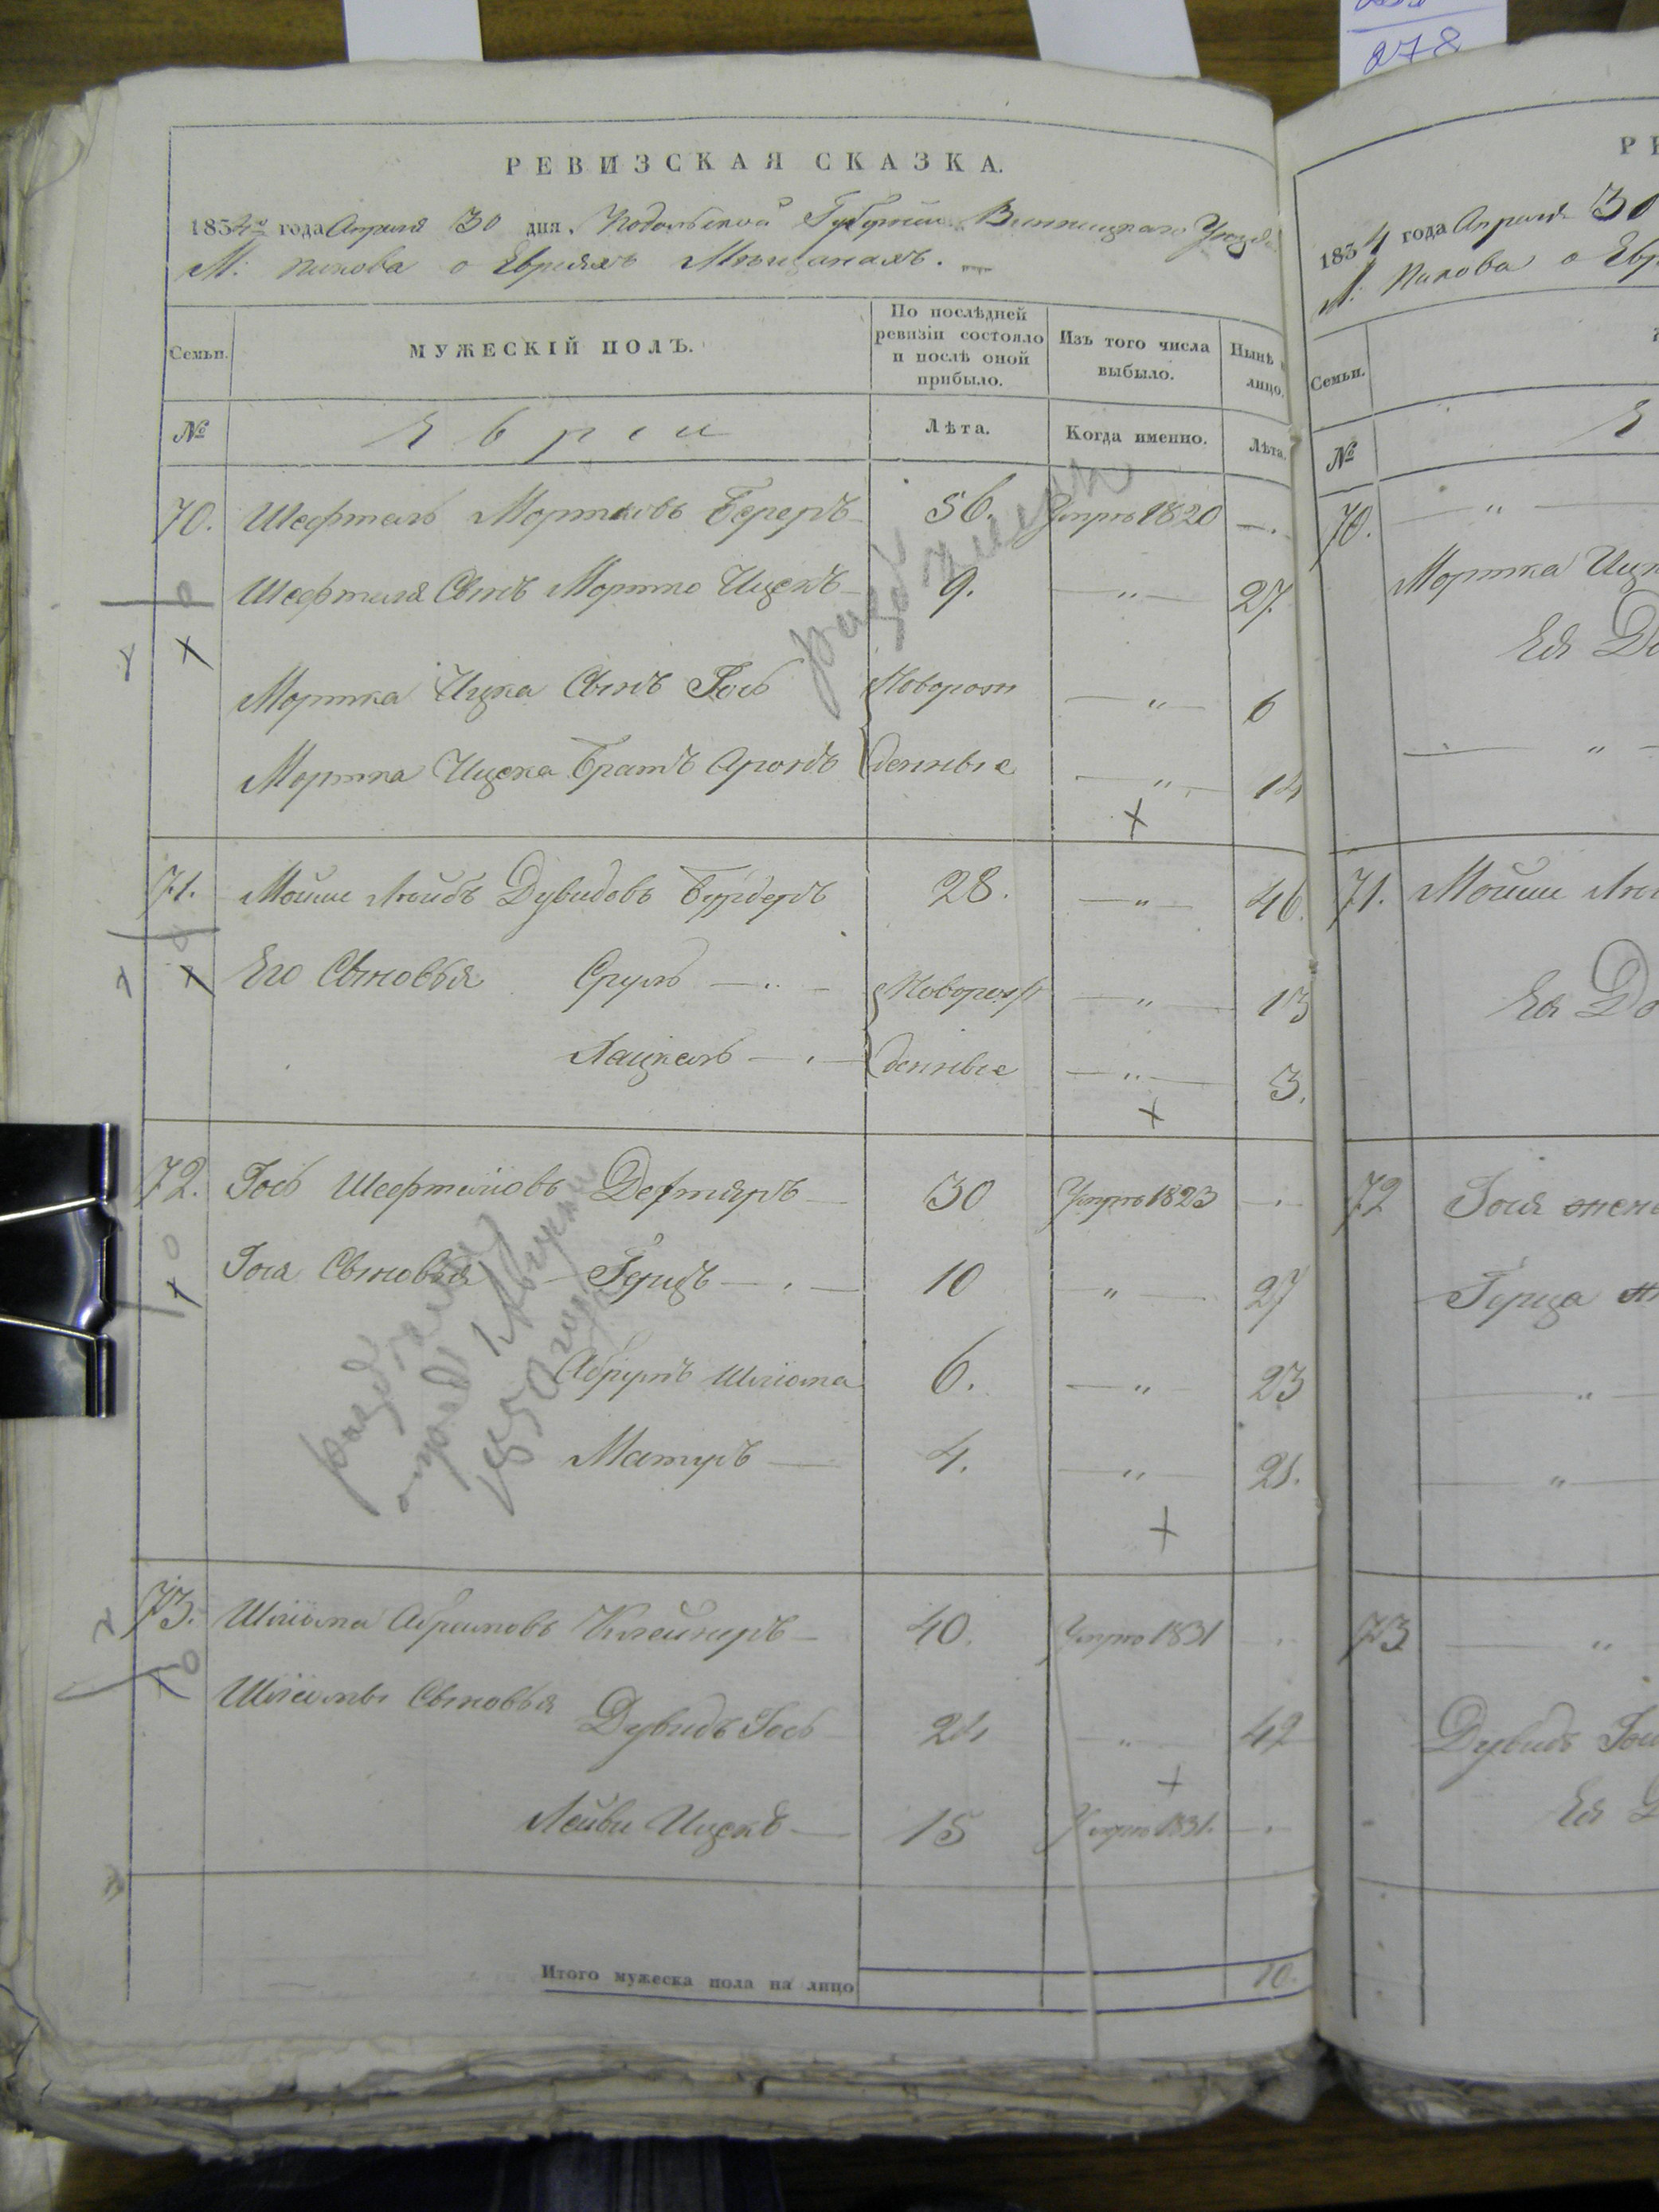 278
РЕВИЗСКАЯ СКАЗКА.
1834го года Апреля 30 дня, Подольской Губернии Винницкаго Уезда
М. Пикова о Евреяхъ Мещанахъ.
Семьи.
МУЖЕСКІЙ ПОЛЪ.
По послѣдней ревизіи состояло и послѣ оной прибыло.
Изъ того числа выбыло.
Нынѣ лицо.
№
Евреи
Лѣта.
Когда именно.
Лѣта.
70. Шефтель Мортковъ 56. Умре 1820 —.
Шефтеля Сынъ Мортко Ицекъ 9. —"— 27.
Мортка Ицка Сынъ Іось Новорож —"— 6
Мортка Ицека Братъ Аронъ денные —"— 14
71. Мойше Лейбъ Дувидовъ 28. —"— 46.
Его Сыновья Сруль —"— Новорож —"— 13
денные —"— 3.
72. Іось Шефтелiовъ Дехтяръ 30 Умре 1823 —.
Іося Сыновья Герцъ 10 " 27
Абрумъ Шліома 6. —"— 23
4. —"— 21.
73. Шліома Абрамовъ Клейнеръ 40. Умре 1831
Шліомы Сыновья
Дувидъ Іось 24 " 42
Лейви Ицекъ 15 Умре 1831. —.
Итого мужеска пола на лицо 10.
1834 года Апреля 30
М. Пикова о Евр
Семьи.
№
70.
Мортка Ицк
Ея До
71. Мойши
Ея До
72 Іося жена
Герца
73
Дувидъ Іос
Ея